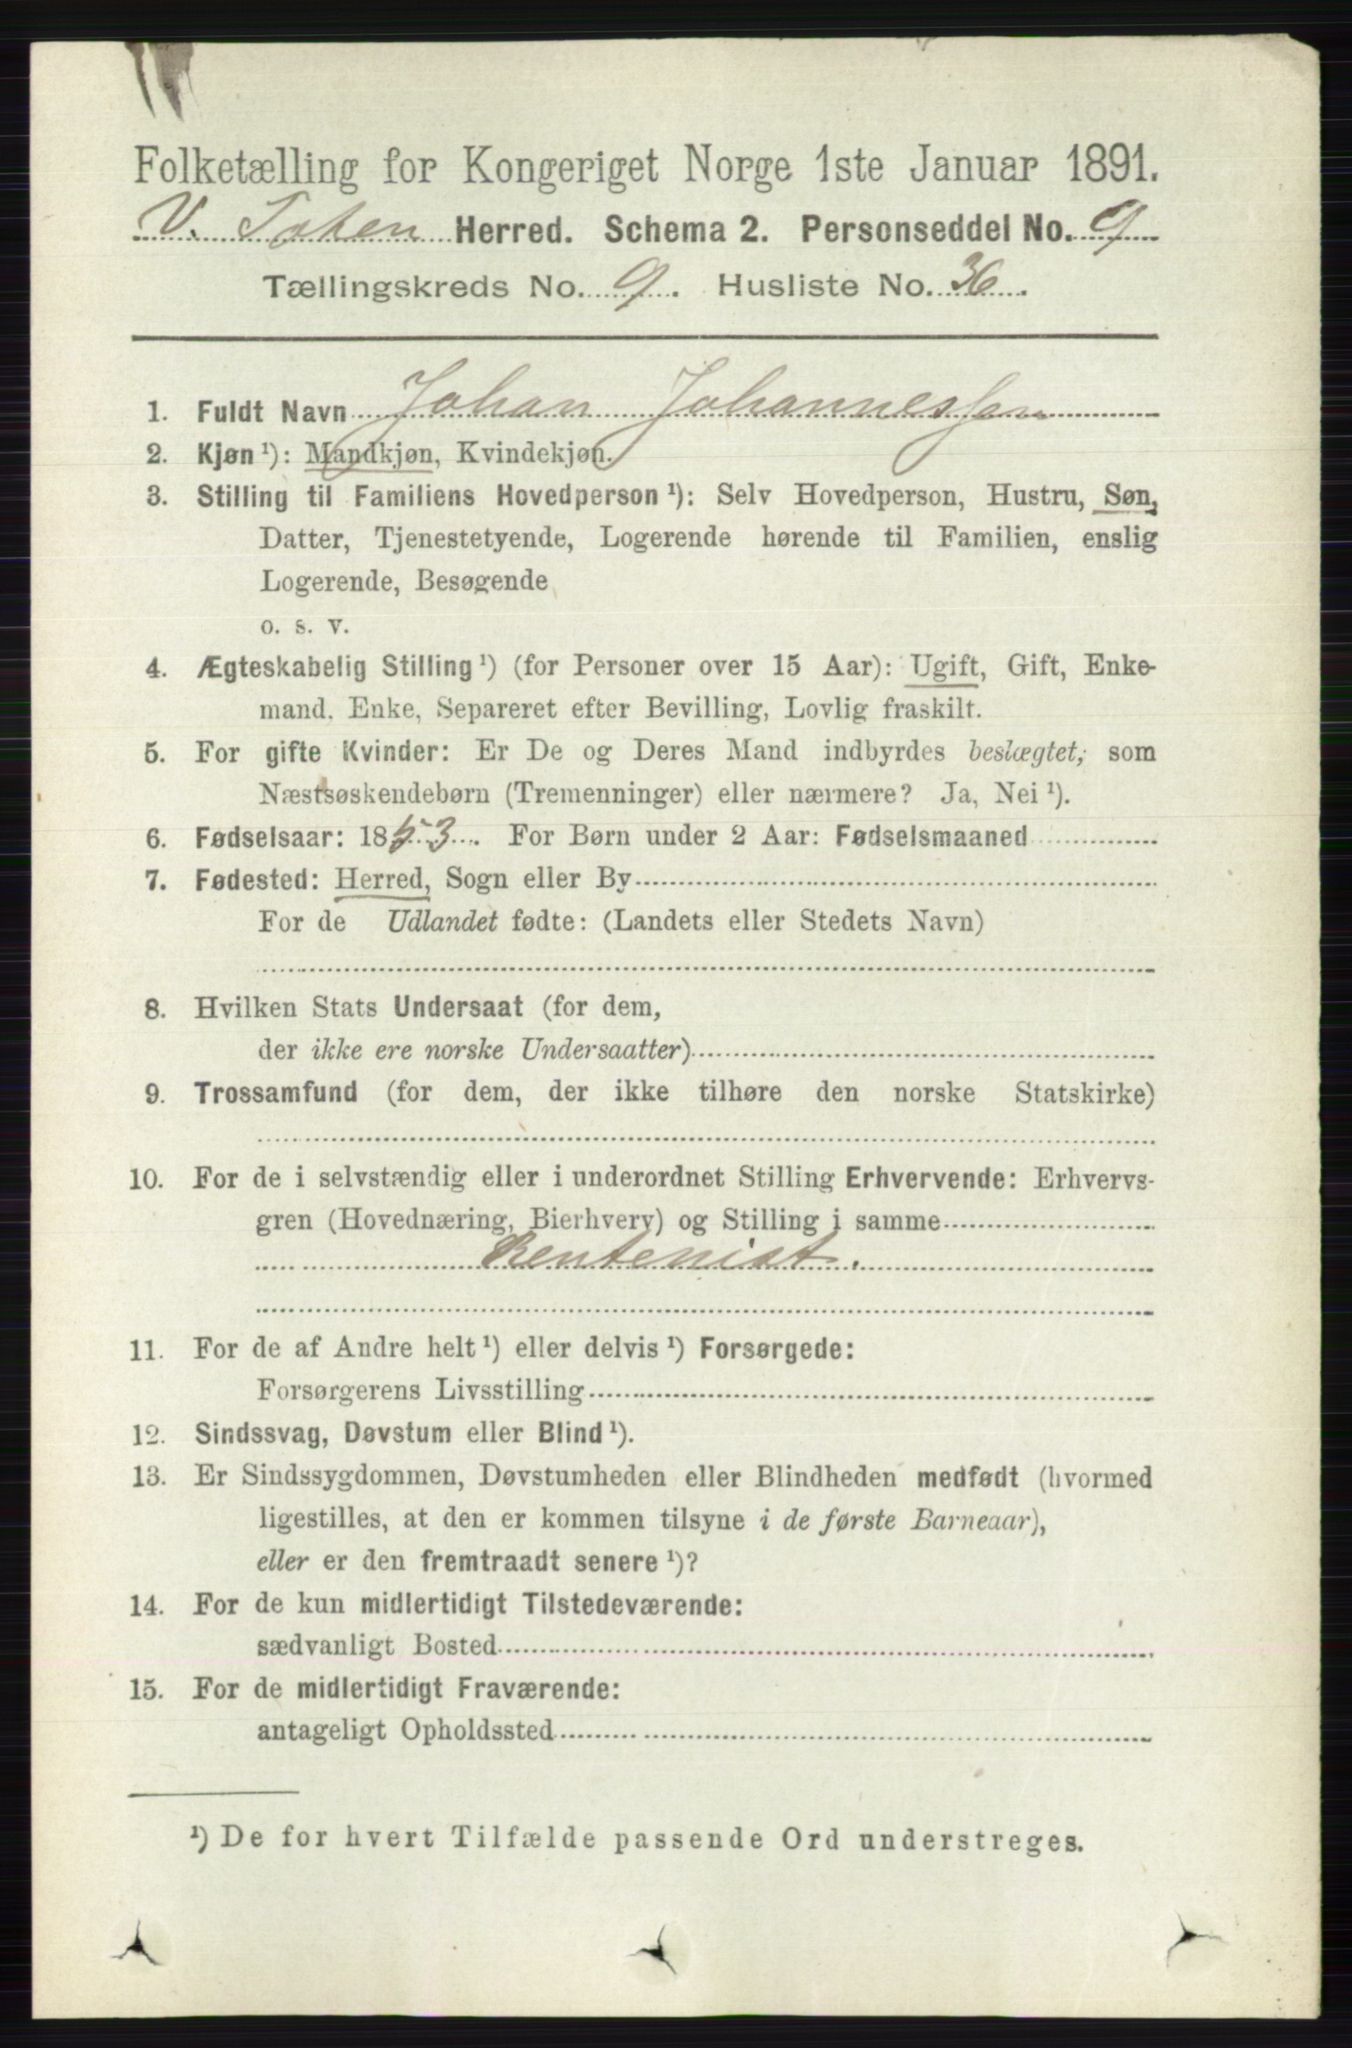 Folketælling for Kongeriget Norge 1ste Januar 1891.
V. Toten Herred. Schema 2. Personseddel No. 9
Tællingskreds No. 9. Husliste No. 36.
1. Fuldt Navn Johan Johannessen
2. Kjøn ¹): Mandkjøn, Kvindekjøn.
3. Stilling til Familiens Hovedperson ¹): Selv Hovedperson, Hustru, Søn,
Datter, Tjenestetyende, Logerende hørende til Familien, enslig
Logerende, Besøgende
o. s. v.
4. Ægteskabelig Stilling ¹) (for Personer over 15 Aar): Ugift, Gift, Enke-
mand, Enke, Separeret efter Bevilling, Lovlig fraskilt.
5. For gifte Kvinder: Er De og Deres Mand indbyrdes beslægtet, som
Næstsøskendebørn (Tremenninger) eller nærmere? Ja, Nei ¹).
6. Fødselsaar: 1853. For Børn under 2 Aar: Fødselsmaaned
7. Fødested: Herred, Sogn eller By
For de Udlandet fødte: (Landets eller Stedets Navn)
8. Hvilken Stats Undersaat (for dem,
der ikke ere norske Undersaatter)
9. Trossamfund (for dem, der ikke tilhøre den norske Statskirke)
10. For de i selvstændig eller i underordnet Stilling Erhvervende: Erhvervs-
gren (Hovednæring, Bierhverv) og Stilling i samme
Rentenist.
11. For de af Andre helt ¹) eller delvis ¹) Forsørgede:
Forsørgerens Livsstilling
12. Sindssvag, Døvstum eller Blind ¹).
13. Er Sindssygdommen, Døvstumheden eller Blindheden medfødt (hvormed
ligestilles, at den er kommen tilsyne i de første Barneaar),
eller er den fremtraadt senere ¹)?
14. For de kun midlertidigt Tilstedeværende:
sædvanligt Bosted
15. For de midlertidigt Fraværende:
antageligt Opholdssted
¹) De for hvert Tilfælde passende Ord understreges.